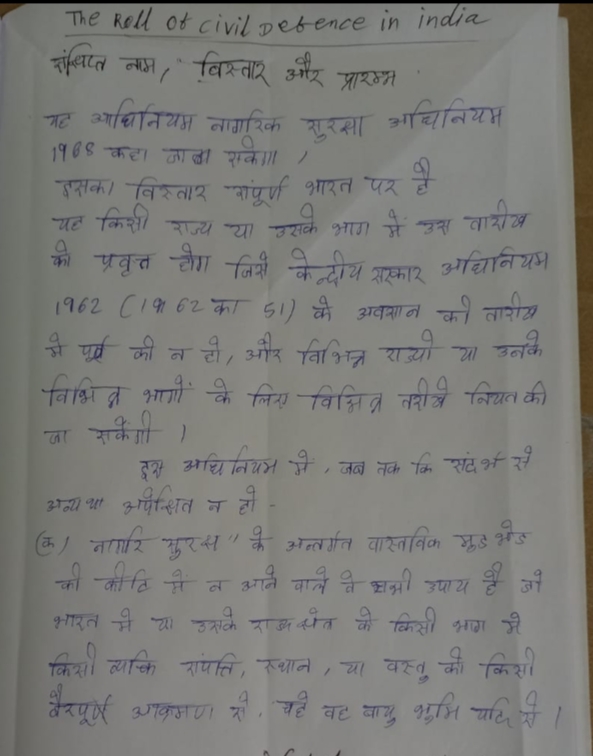 The Roll of civil Defence in india
संक्षिप्त नाम, विस्तार और प्रारम्भ
यह अधिनियम नागरिक सुरक्षा अधिनियम
1968 कहा जा सकेगा ।
इसका विस्तार संपूर्ण भारत पर है
यह किसी राज्य या उसके भाग में उस तारीख
को प्रवृत्त होगा जिसे केन्द्रीय सरकार अधिनियम
1962 (1962 का 51) के अवसान की तारीख
से पूर्व की न हो, और विभिन्न राज्यो या उनके
विभिन्न भागों के लिए विभिन्न तरीखे नियत की
जा सकेंगी ।
इस अधिनियम में, जब तक कि संदर्भ से
अन्यथा अपेक्षित न हो -
(क) नागरि सुरक्ष" के अन्तर्गत वास्तविक मुड भेड
की कीटि में न आने वाले वे सभी उपाय है जो
भारत मे या उसके राज्य क्षेत के किसी भाग मे
किसी व्यक्ति संपति, स्थान, या वस्तु की किसी
वैरपूर्ण आक्रमण से, चहे वह वायु भुमि यदि से ।